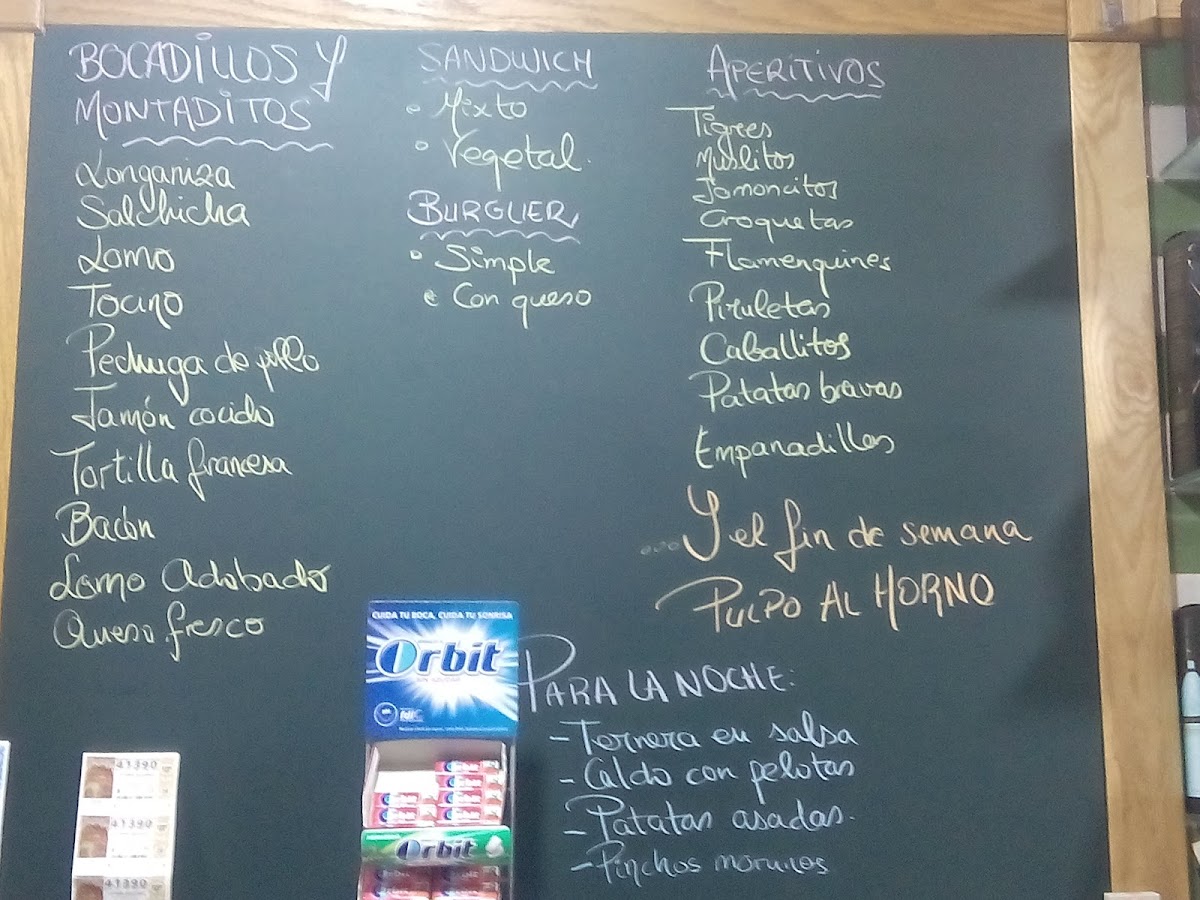 BOCADILLOS Y
MONTADITOS
Longaniza
Salchicha
Lomo
Tocino
Pechuga de pollo
Jamón cocido
Tortilla francesa
Bacón
Lomo Adobado
Queso fresco
SANDWICH
• Mixto
• Vegetal.
BURGUER
• Simple
• Con queso
APERITIVOS
Tigres
Muslitos
Jamoncitos
Croquetas
Flamenquines
Piruletas
Caballitos
Patatas bravas
Empanadillas
...Y el fin de semana
PULPO AL HORNO
PARA LA NOCHE:
- Ternera en salsa
- Caldo con pelotas
- Patatas asadas.
- Pinchos morunos
CUIDA TU BOCA, CUIDA TU SONRISA
Orbit
SIN AZÚCAR
Orbit
Orbit
Orbit
Orbit
Orbit
Orbit
Orbit
41390
41390
41390